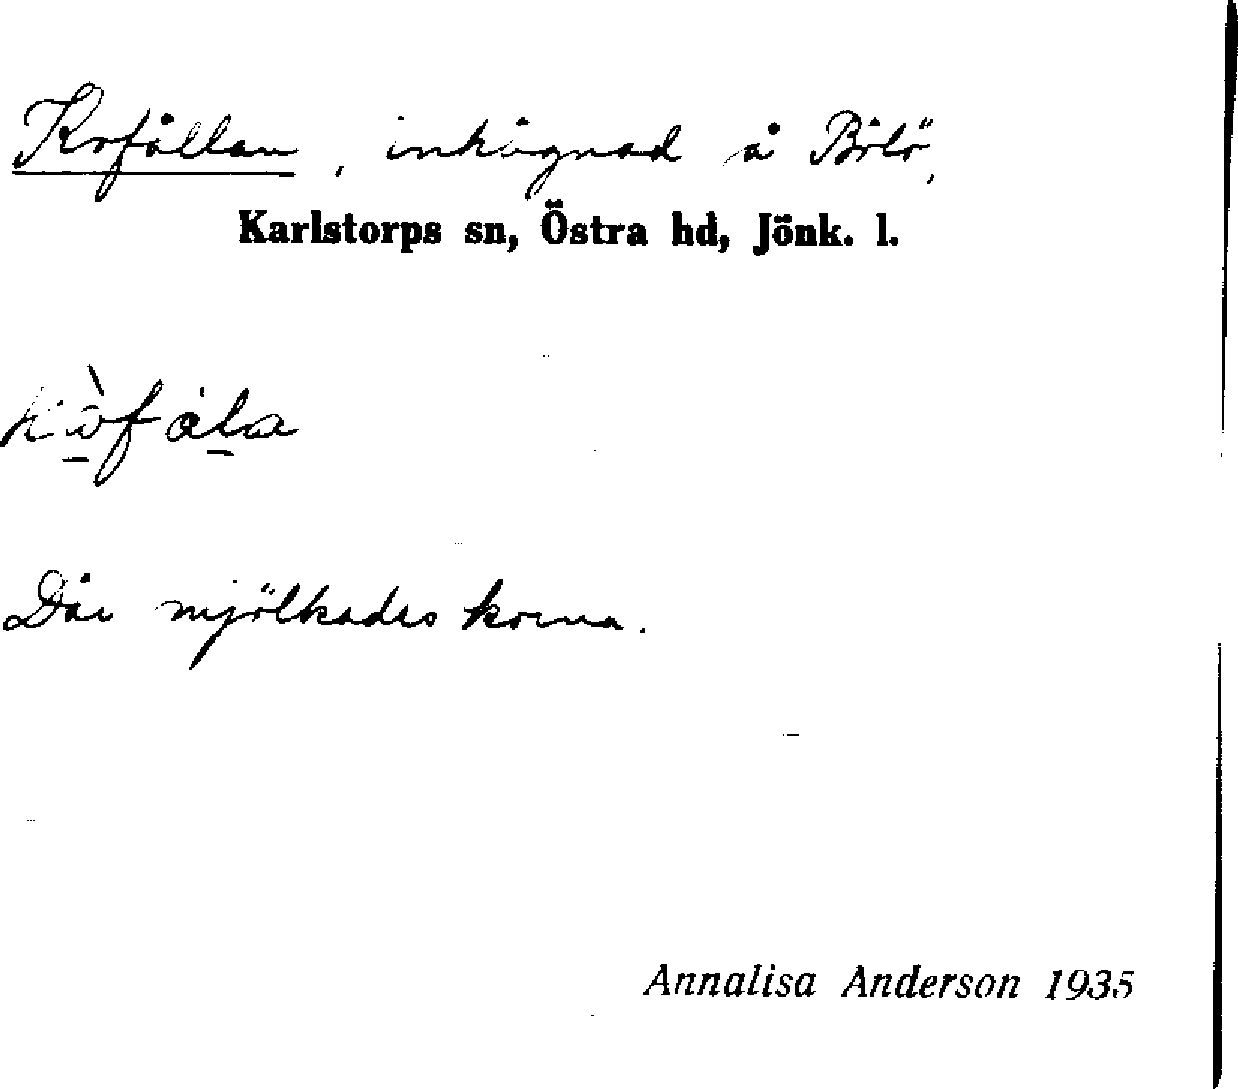 Kofållan, inhägnad å Bölö,
Karlstorps sn, Östra hd, Jönk. l.
Där mjölkades korna.
Annalisa Anderson 1935